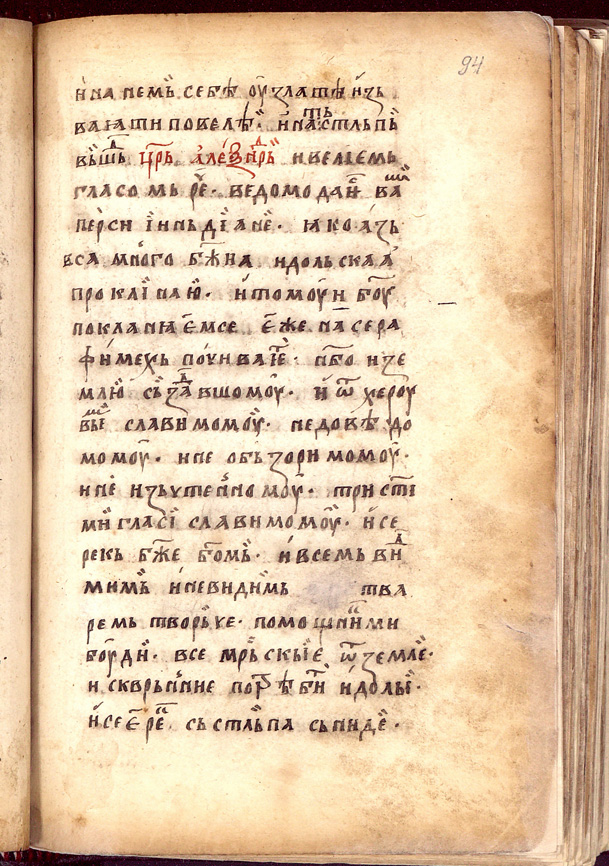 94
и на немь себѣ ѹ златѣ изъ
ваıати повелѣ· и на стльпь
вьшⷣь цр҃ь алеѯаⷩдрь и велїемь
гласомь рⷱе· ведомо да е҆ ваⷨ
перси ї иньдїане· ıако азь
вса многаа бж҃на идольскаа
проклїнаю· и томоу и бг҃оу
покланıаемсе еже на сера
фимехь почиваѥ· нб҃о и зе
млю съзаⷣавшомоу· и ѿ херѹ
виⷨ славимомоу· недовѣдо
момоу· и не обьзоримомоу·
и не изьчтенномоу· трист҃ї
ми гласї славимомоу· и се
рекь бж҃е бг҃омь· и всемь виⷣ
мимь и невидимь тва
ремь творьче· помощники ми
боуди· все мрьскыѥ ѿ землѥ·
и скврьниѥ потрѣби идолыѥ·
и се рⷱе сь стльпа сьниде·